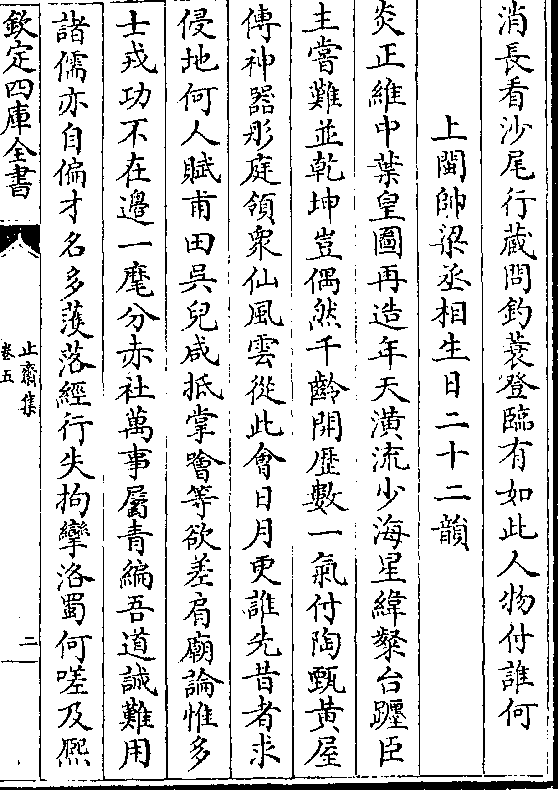 消長看沙尾行蔵問釣蓑登臨有如此人物付誰何
上閩帥梁丞相生日二十二韻
炎正維中葉皇圖再造年天潢流少海星緯粲台躔臣
主嘗難並乾坤豈偶然千齡開歴數一氣付陶甄黃屋
傳神器彤庭領衆仙風雲從此會日月更誰先昔者求
侵地何人賦甫田吳兒咸抵掌噲等欲差肩廟論惟多
士戎功不在邊一麾分赤社萬事屬青編吾道誠難用
諸儒亦自偏才名多濩落經行失拘攣洛蜀何嗟及熈
欽定四庫全書
止齋集
卷五
二